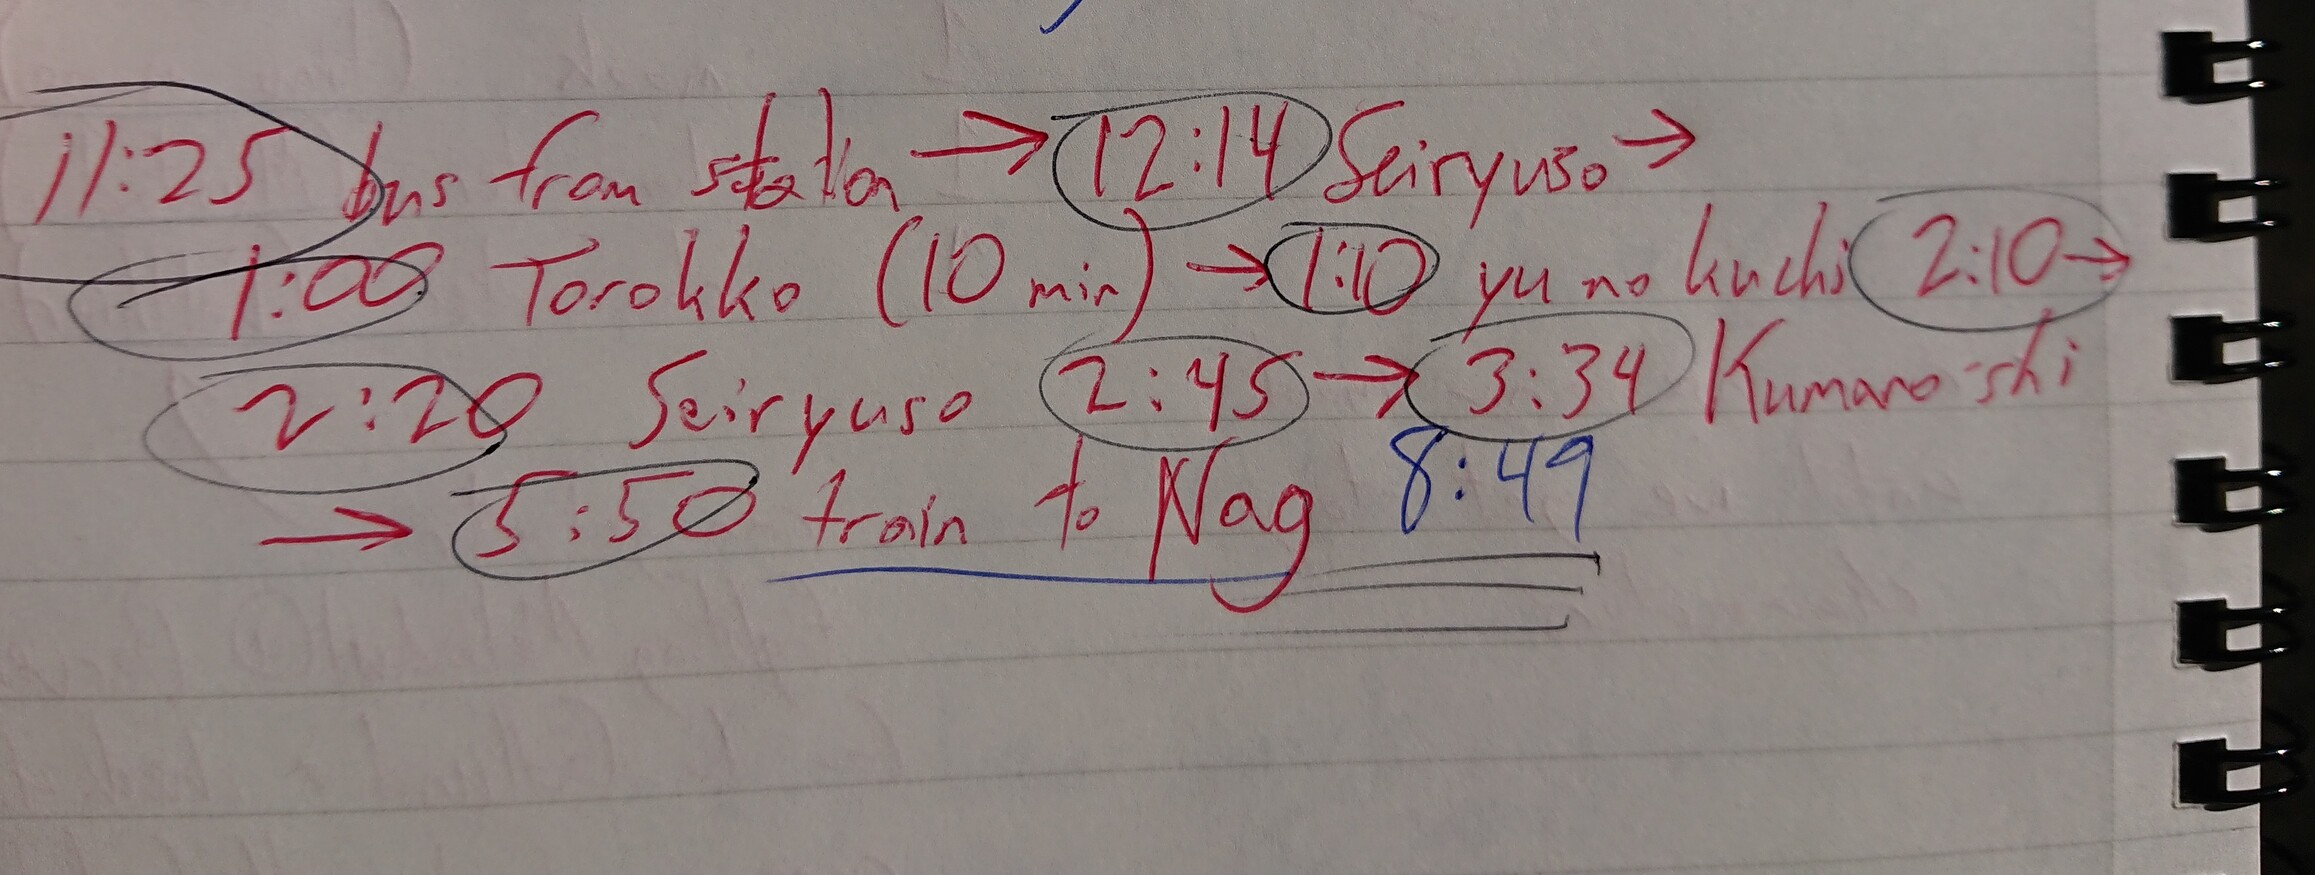 11:25 bus from station → 12:14 Seiryuso →
1:00 Torokko (10 min) → 1:10 yu no kuchi 2:10 →
2:20 Seiryuso 2:45 → 3:34 Kumano-shi
→ 5:50 train to Nag 8:49